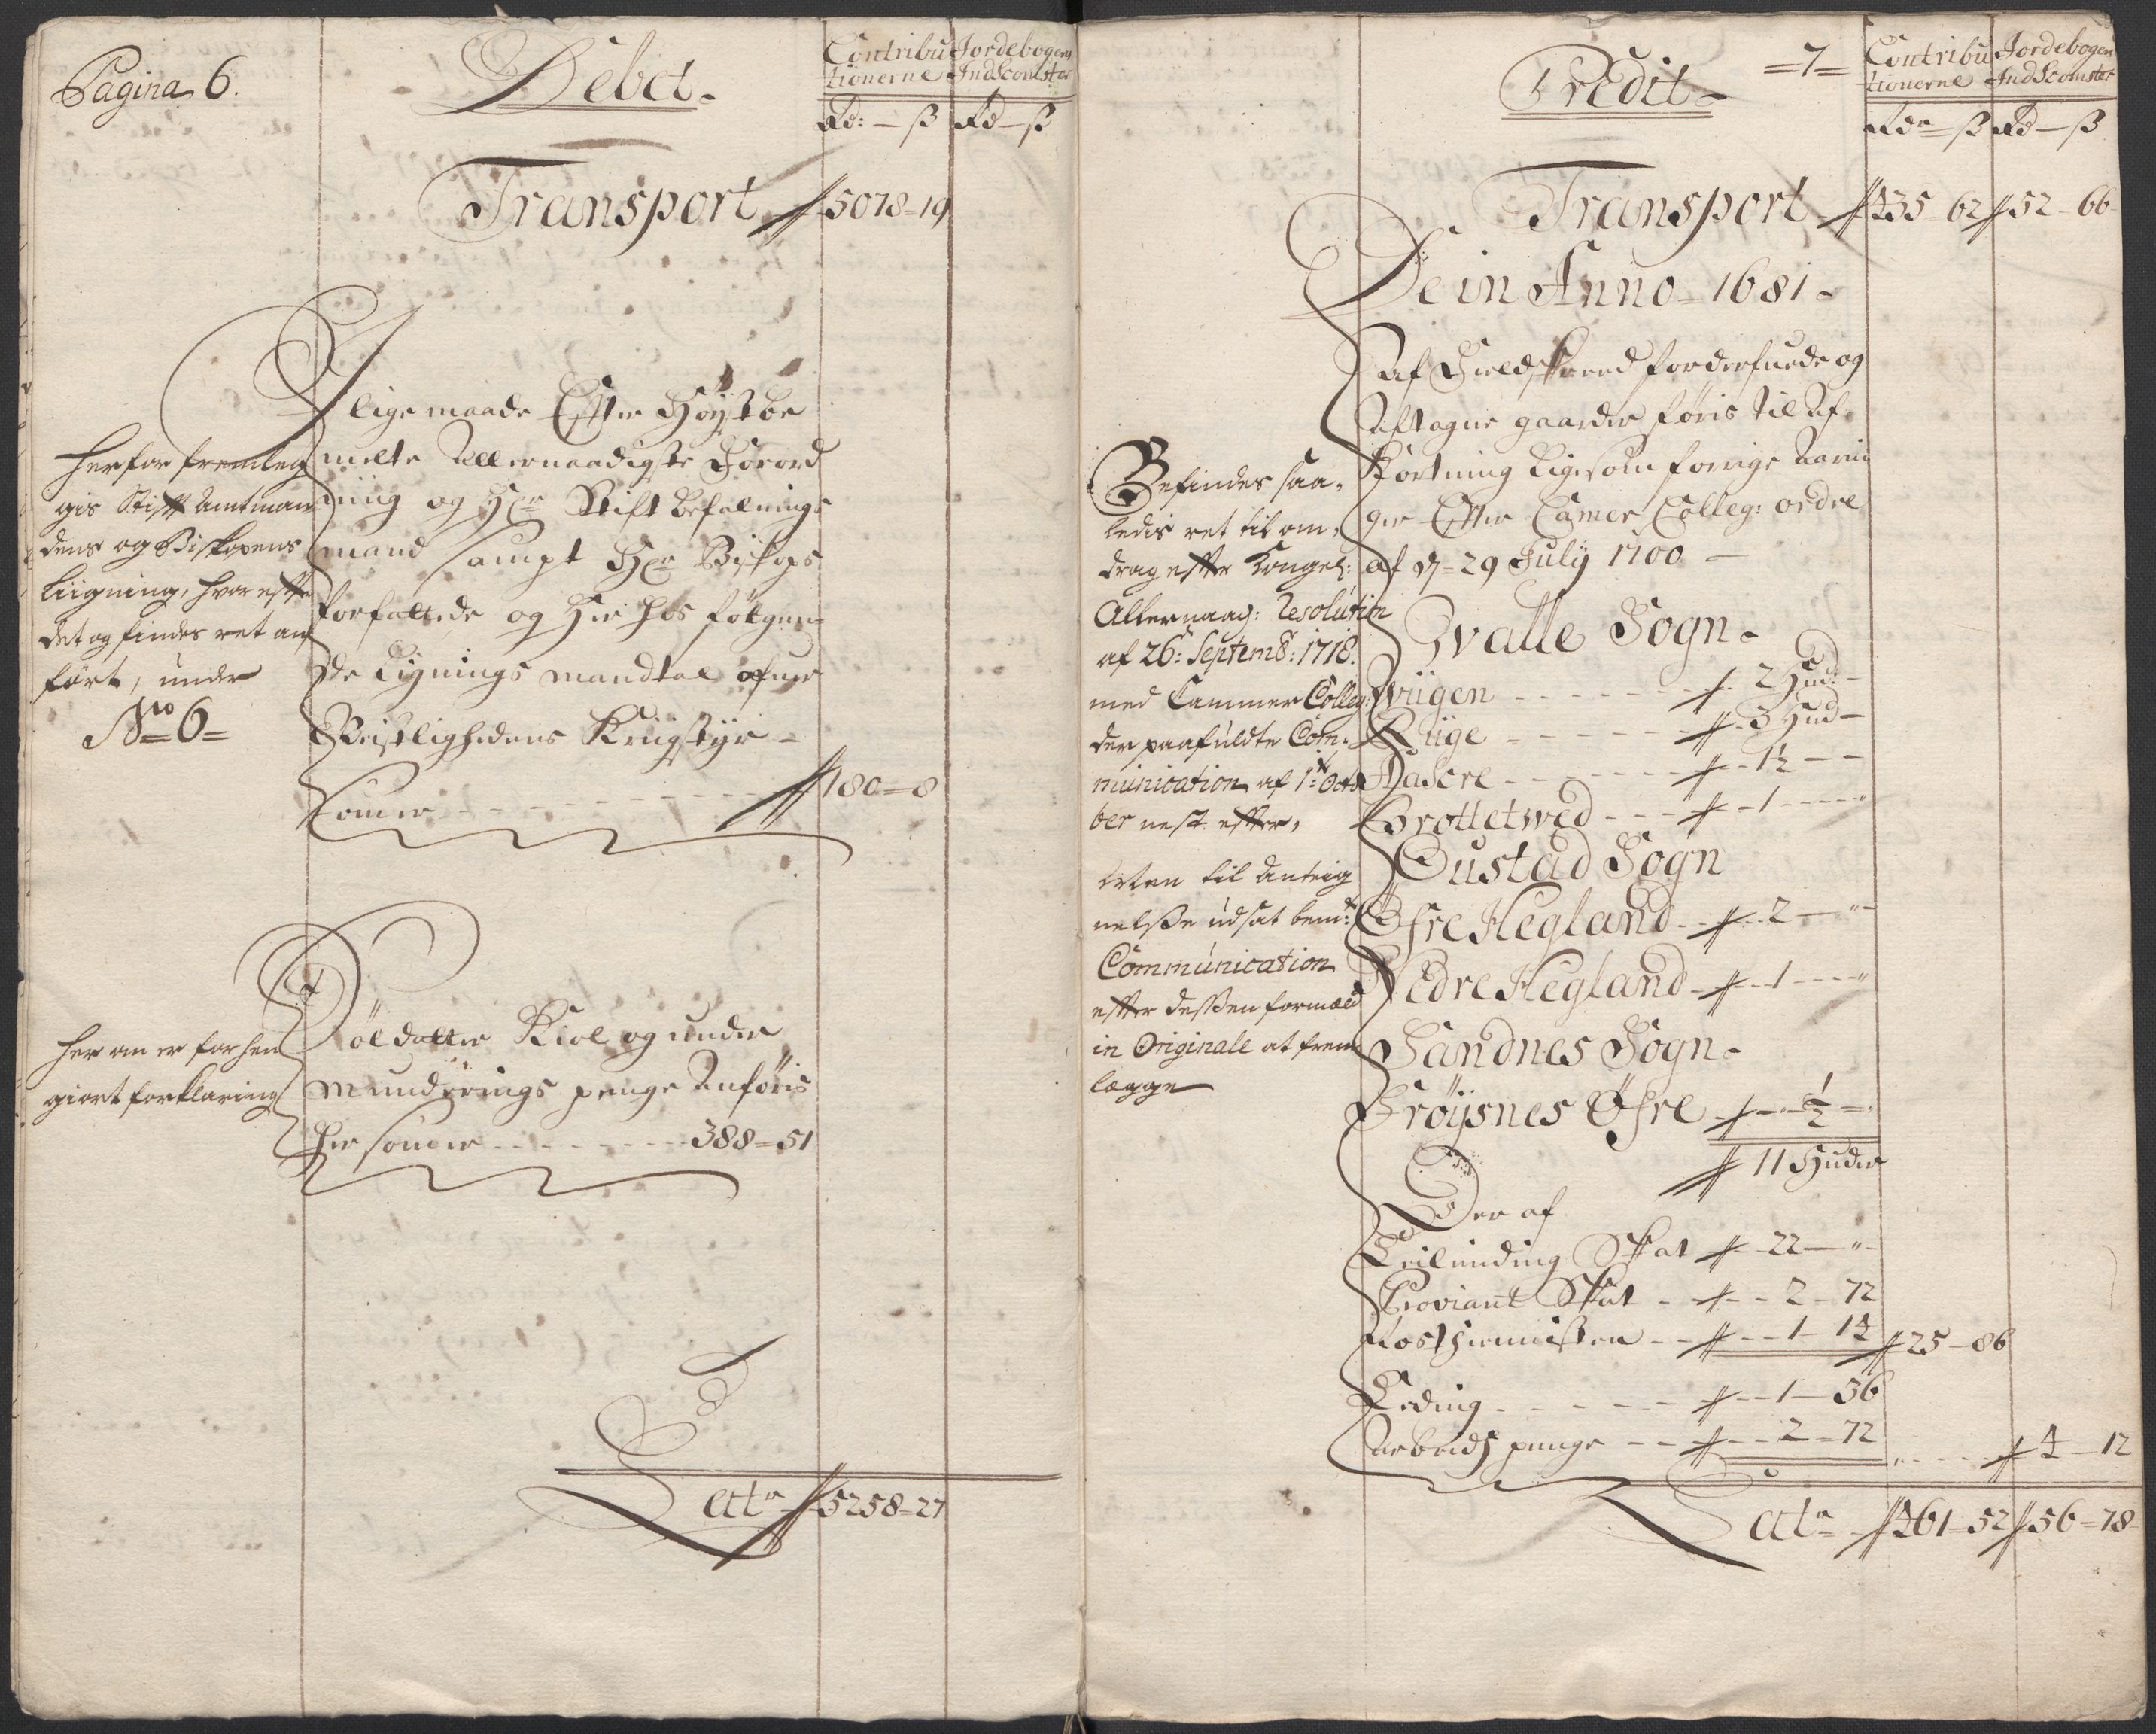 Pagina 6.
Debet.
Contribu
tionerne
Jordebogens
Indkomster
Rd: — ß Rd — ß
Transport 5078 = 19
I lige maade Efter Høystbe
melte Allernaadigste Forord
ning og Hr Stift befalnings
mand sampt Hr Biskops
forfattede og Her hos følgen
de Lignings mandtal ofuer
Geistlighedens Kriigstyr -
Komer - - - - - - 180 = 8
Her for fremleg
gis Stifft Amtman
dens og Biskopens
Liigning, hvor effter
det og findes ret an
fört, under
No 6 =
Soldatter Kiol og under
Munderings penge Anføris
her somer - - - - - - 388 = 51
Her om er forhen
giort forklaring
Latr 5258 = 27
Credit
= 7 =
Contribu
tionerne
Jordebogen
Indkomster
Rdr — ß Rd — ß
Transport 435 - 62 52 - 66
De in Anno 1681 -
Af Fieldskreed forderfuede og
Aftagne gaarder føris til Af
kortning Ligesom forrige Aarin
ger Efter Camer Colleg: ordre
af d = 29 July 1700 —
Befindes saa,
ledis ret til om,
drag effter Kongel:
Allernaad: Resolution
af 26: Septemb: 1718.
med Cammer Colleg:
der paafuldte Com-
munication af 1: Octo
ber nest effter,
Men til Anteig
nelsse udsat bemt:
Communication
effter dessen formeld
in Originale at frem
lægge
Qvalle Sogn -
- - - - - 2 Hud: -
- - - - - 3 Hud -
- - - - - 1½ - -
Grottetwed - - - 1 - - -
Oustad Sogn
Øfre Hegland - - 2 - "
Nedre Hegland - - 1 - - "
Sandnes Sogn -
Frøysnes Øfre - - ½ = "
11 Huder
Der af
Leilending Skat - 22 - " -
Proviant Skat - - - 2 - 72
Rosthienniste - - - 1 - 14 25 - 86
Leding - - - - - 1 - 36
Arbeids penge - - - 2 - 72 4 - 12
Latr 461 - 52 56 - 78